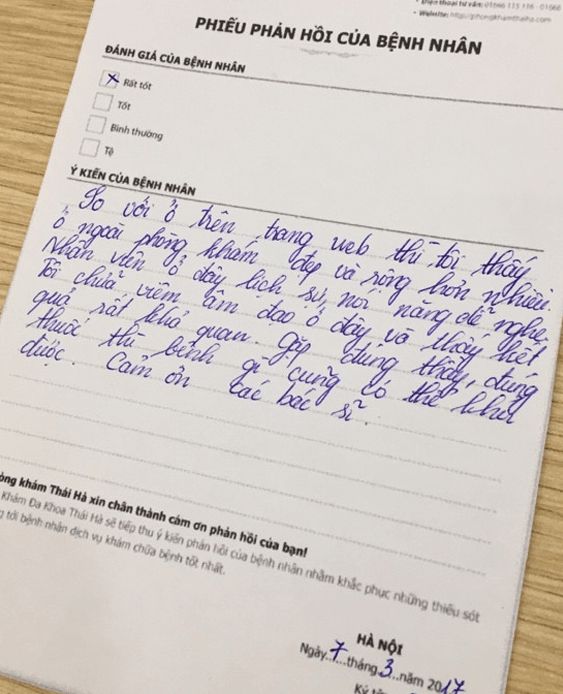 Điện thoại tư vấn: 01666 115 116 - 01666
Website: http://phongkhamthaiha.com
PHIẾU PHẢN HỒI CỦA BỆNH NHÂN
ĐÁNH GIÁ CỦA BỆNH NHÂN
Rất tốt
Tốt
Bình thường
Tệ
Ý KIẾN CỦA BỆNH NHÂN
So với ở trên trang web thì tôi thấy
ở ngoài phòng khám đẹp và rộng hơn nhiều.
Nhân viên ở đây lịch sự, nói năng dễ nghe.
Tôi chữa viêm âm đạo ở đây và thấy kết
quả rất khả quan. Gặp đúng thầy, đúng
thuốc thì bệnh gì cũng có thể khỏi
được. Cảm ơn các bác sĩ.
òng khám Thái Hà xin chân thành cảm ơn phản hồi của bạn!
Khám Đa Khoa Thái Hà sẽ tiếp thu ý kiến phản hồi của bệnh nhân nhằm khắc phục những thiếu sót
tới bệnh nhân dịch vụ khám chữa bệnh tốt nhất.
HÀ NỘI
Ngày 7 tháng 3 năm 2017
Ký